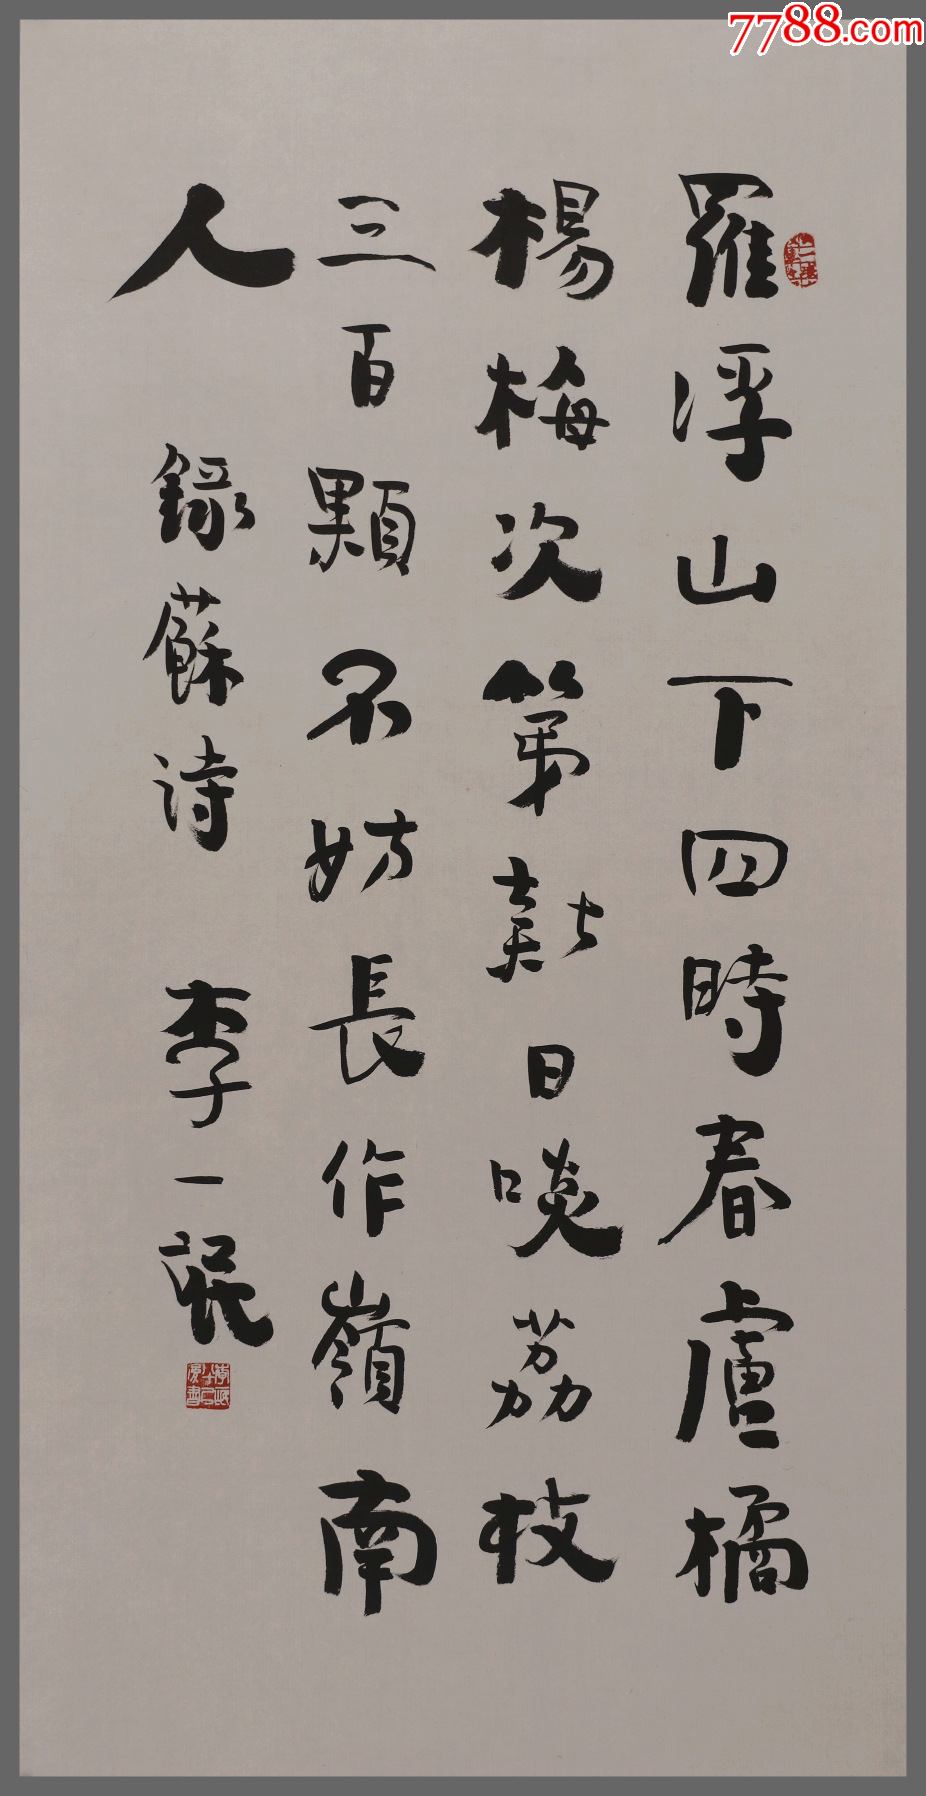 7788.com
羅浮山下四時春盧橘
楊梅次第新日啖荔枝
三百顆不妨長作嶺南
人 錄蘇詩 李一氓